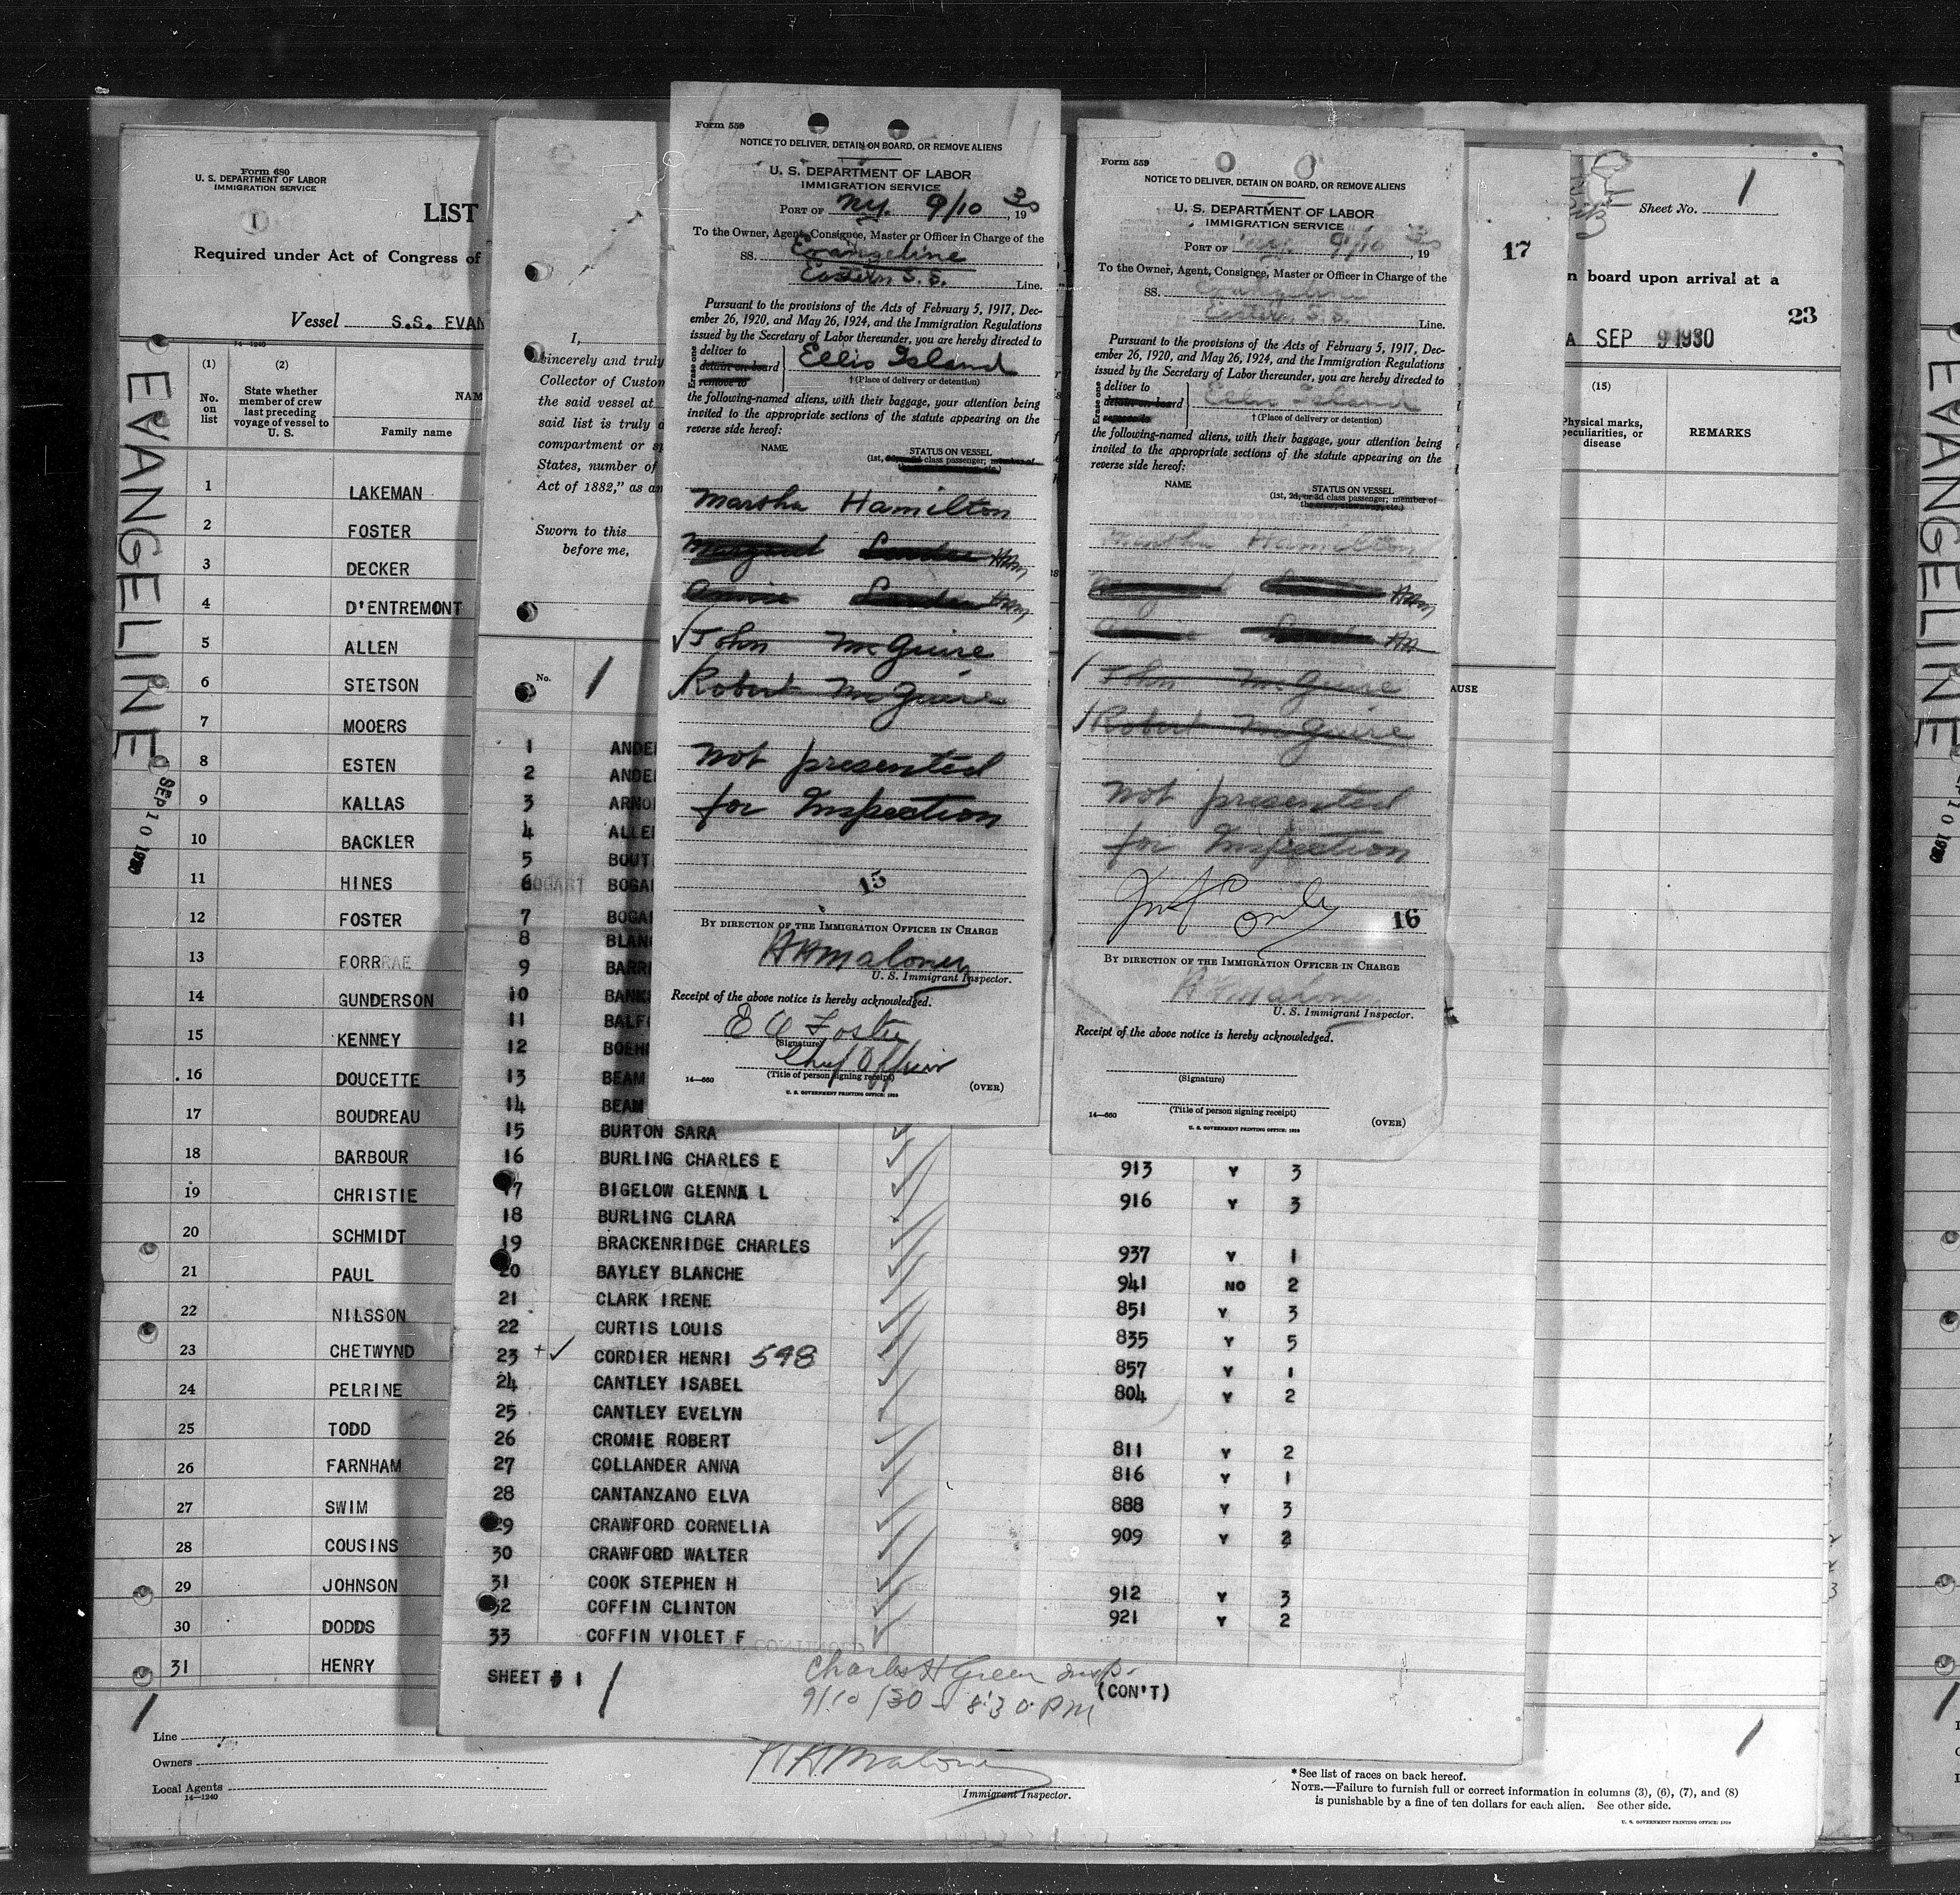 Form 680
U. S. DEPARTMENT OF LABOR
IMMIGRATION SERVICE
1
LIST
Required under Act of Congress of
Vessel S.S. EVAN
14-1240
(1)
No. on list
(2)
State whether member of crew last preceding voyage of vessel to U. S.
NAM
Family name
EVANGELINE
SEP 10 1930
1 LAKEMAN
2 FOSTER
3 DECKER
4 D'ENTREMONT
5 ALLEN
6 STETSON
7 MOOERS
8 ESTEN
9 KALLAS
10 BACKLER
11 HINES
12 FOSTER
13 FORRRAE
14 GUNDERSON
15 KENNEY
16 DOUCETTE
17 BOUDREAU
18 BARBOUR
19 CHRISTIE
20 SCHMIDT
21 PAUL
22 NILSSON
23 CHETWYND
24 PELRINE
25 TODD
26 FARNHAM
27 SWIM
28 COUSINS
29 JOHNSON
30 DODDS
31 HENRY
1
Line
Owners
Local Agents
14-1240
I,
sincerely and truly
Collector of Custom
the said vessel at
said list is truly
compartment or
States, number of
Act of 1882," as an
Sworn to this
before me,
No.
1
1 ANDE
2 ANDE
3 ARNO
4 ALLE
5 BOUT
6 BOGART BOGA
7 BOGA
8 BLAN
9 BARR
10 BANK
11 BALF
12 BOEH
13 BEAM
14 BEAM
15 BURTON SARA
16 BURLING CHARLES E 913 Y 3
17 BIGELOW GLENNA L 916 Y 3
18 BURLING CLARA
19 BRACKENRIDGE CHARLES 937 Y 1
20 BAYLEY BLANCHE 941 NO 2
21 CLARK IRENE 851 Y 3
22 CURTIS LOUIS 835 Y 5
23 +✓ CORDIER HENRI 598 857 Y 1
24 CANTLEY ISABEL 804 Y 2
25 CANTLEY EVELYN
26 CROMIE ROBERT 811 Y 2
27 COLLANDER ANNA 816 Y 1
28 CANTANZANO ELVA 888 Y 3
29 CRAWFORD CORNELIA 909 Y 2
30 CRAWFORD WALTER
31 COOK STEPHEN H 912 Y 3
32 COFFIN CLINTON 921 Y 2
33 COFFIN VIOLET F
SHEET # 1 1
(CON'T)
Charles H Green insp.
9/10/30 - 8:30 PM
H H Maloney
Immigrant Inspector.
Form 559
NOTICE TO DELIVER, DETAIN ON BOARD, OR REMOVE ALIENS
U. S. DEPARTMENT OF LABOR
IMMIGRATION SERVICE
PORT OF N.Y. 9/10, 1930
To the Owner, Agent, Consignee, Master or Officer in Charge of the
SS. Evangeline
Eastern S.S. Line.
Pursuant to the provisions of the Acts of February 5, 1917, Dec-
ember 26, 1920, and May 26, 1924, and the Immigration Regulations
issued by the Secretary of Labor thereunder, you are hereby directed to
Erase one
deliver to
detain on board
remove to
Ellis Island
†(Place of delivery or detention)
the following-named aliens, with their baggage, your attention being
invited to the appropriate sections of the statute appearing on the
reverse side hereof:
NAME STATUS ON VESSEL
(1st, 2d, or 3d class passenger; member of
Marsha Hamilton
Margaret
Annie
✓ John McGuire
Robert McGuire
Not presented
for Inspection
15
BY DIRECTION OF THE IMMIGRATION OFFICER IN CHARGE
H H Maloney
U. S. Immigrant Inspector.
Receipt of the above notice is hereby acknowledged.
E A Foster
(Signature)
Chief Officer
(Title of person signing receipt)
14-660 (OVER)
U. S. GOVERNMENT PRINTING OFFICE: 1929
Form 559
NOTICE TO DELIVER, DETAIN ON BOARD, OR REMOVE ALIENS
U. S. DEPARTMENT OF LABOR
IMMIGRATION SERVICE
PORT OF N.Y. 9/10, 1930
To the Owner, Agent, Consignee, Master or Officer in Charge of the
SS. Evangeline
Eastern S.S. Line.
Pursuant to the provisions of the Acts of February 5, 1917, Dec-
ember 26, 1920, and May 26, 1924, and the Immigration Regulations
issued by the Secretary of Labor thereunder, you are hereby directed to
Erase one
deliver to
detain on board
remove to
Ellis Island
†(Place of delivery or detention)
the following-named aliens, with their baggage, your attention being
invited to the appropriate sections of the statute appearing on the
reverse side hereof:
NAME STATUS ON VESSEL
(1st, 2d, or 3d class passenger; member of
the crew, stowaway, etc.)
Hamilton
John McGuire
Robert McGuire
Not presented
for Inspection
16
BY DIRECTION OF THE IMMIGRATION OFFICER IN CHARGE
H H Maloney
U. S. Immigrant Inspector.
Receipt of the above notice is hereby acknowledged.
(Signature)
(Title of person signing receipt)
14-660 (OVER)
U. S. GOVERNMENT PRINTING OFFICE: 1929
17
AUSE
Sheet No. 1
n board upon arrival at a
23
A SEP 9 1930
(15)
Physical marks, peculiarities, or disease
REMARKS
1
*See list of races on back hereof.
NOTE.—Failure to furnish full or correct information in columns (3), (6), (7), and (8)
is punishable by a fine of ten dollars for each alien. See other side.
U. S. GOVERNMENT PRINTING OFFICE: 1929
EVANGELINE